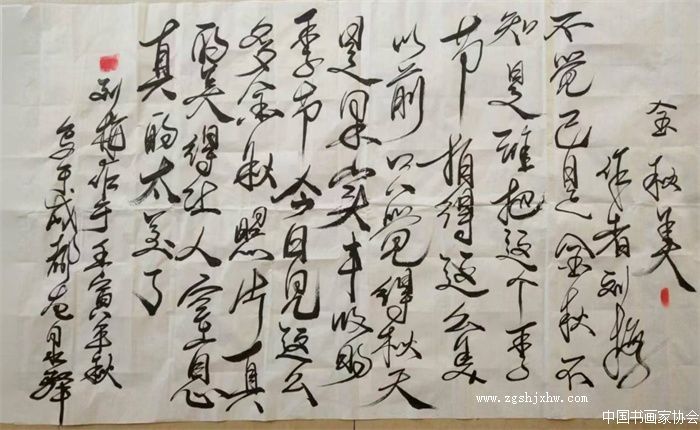 金秋美
作者刘梅
不觉已是金秋不
知是谁把这个季
节 拍得这么美
以前只觉得秋天
是果实丰收的
季节 今日见这么
多金秋照片真
的美得让人窒息
真的太美了
刘梅作于壬寅年秋
写于成都龙泉驿
www.zgshjxhw.com
中国书画家协会